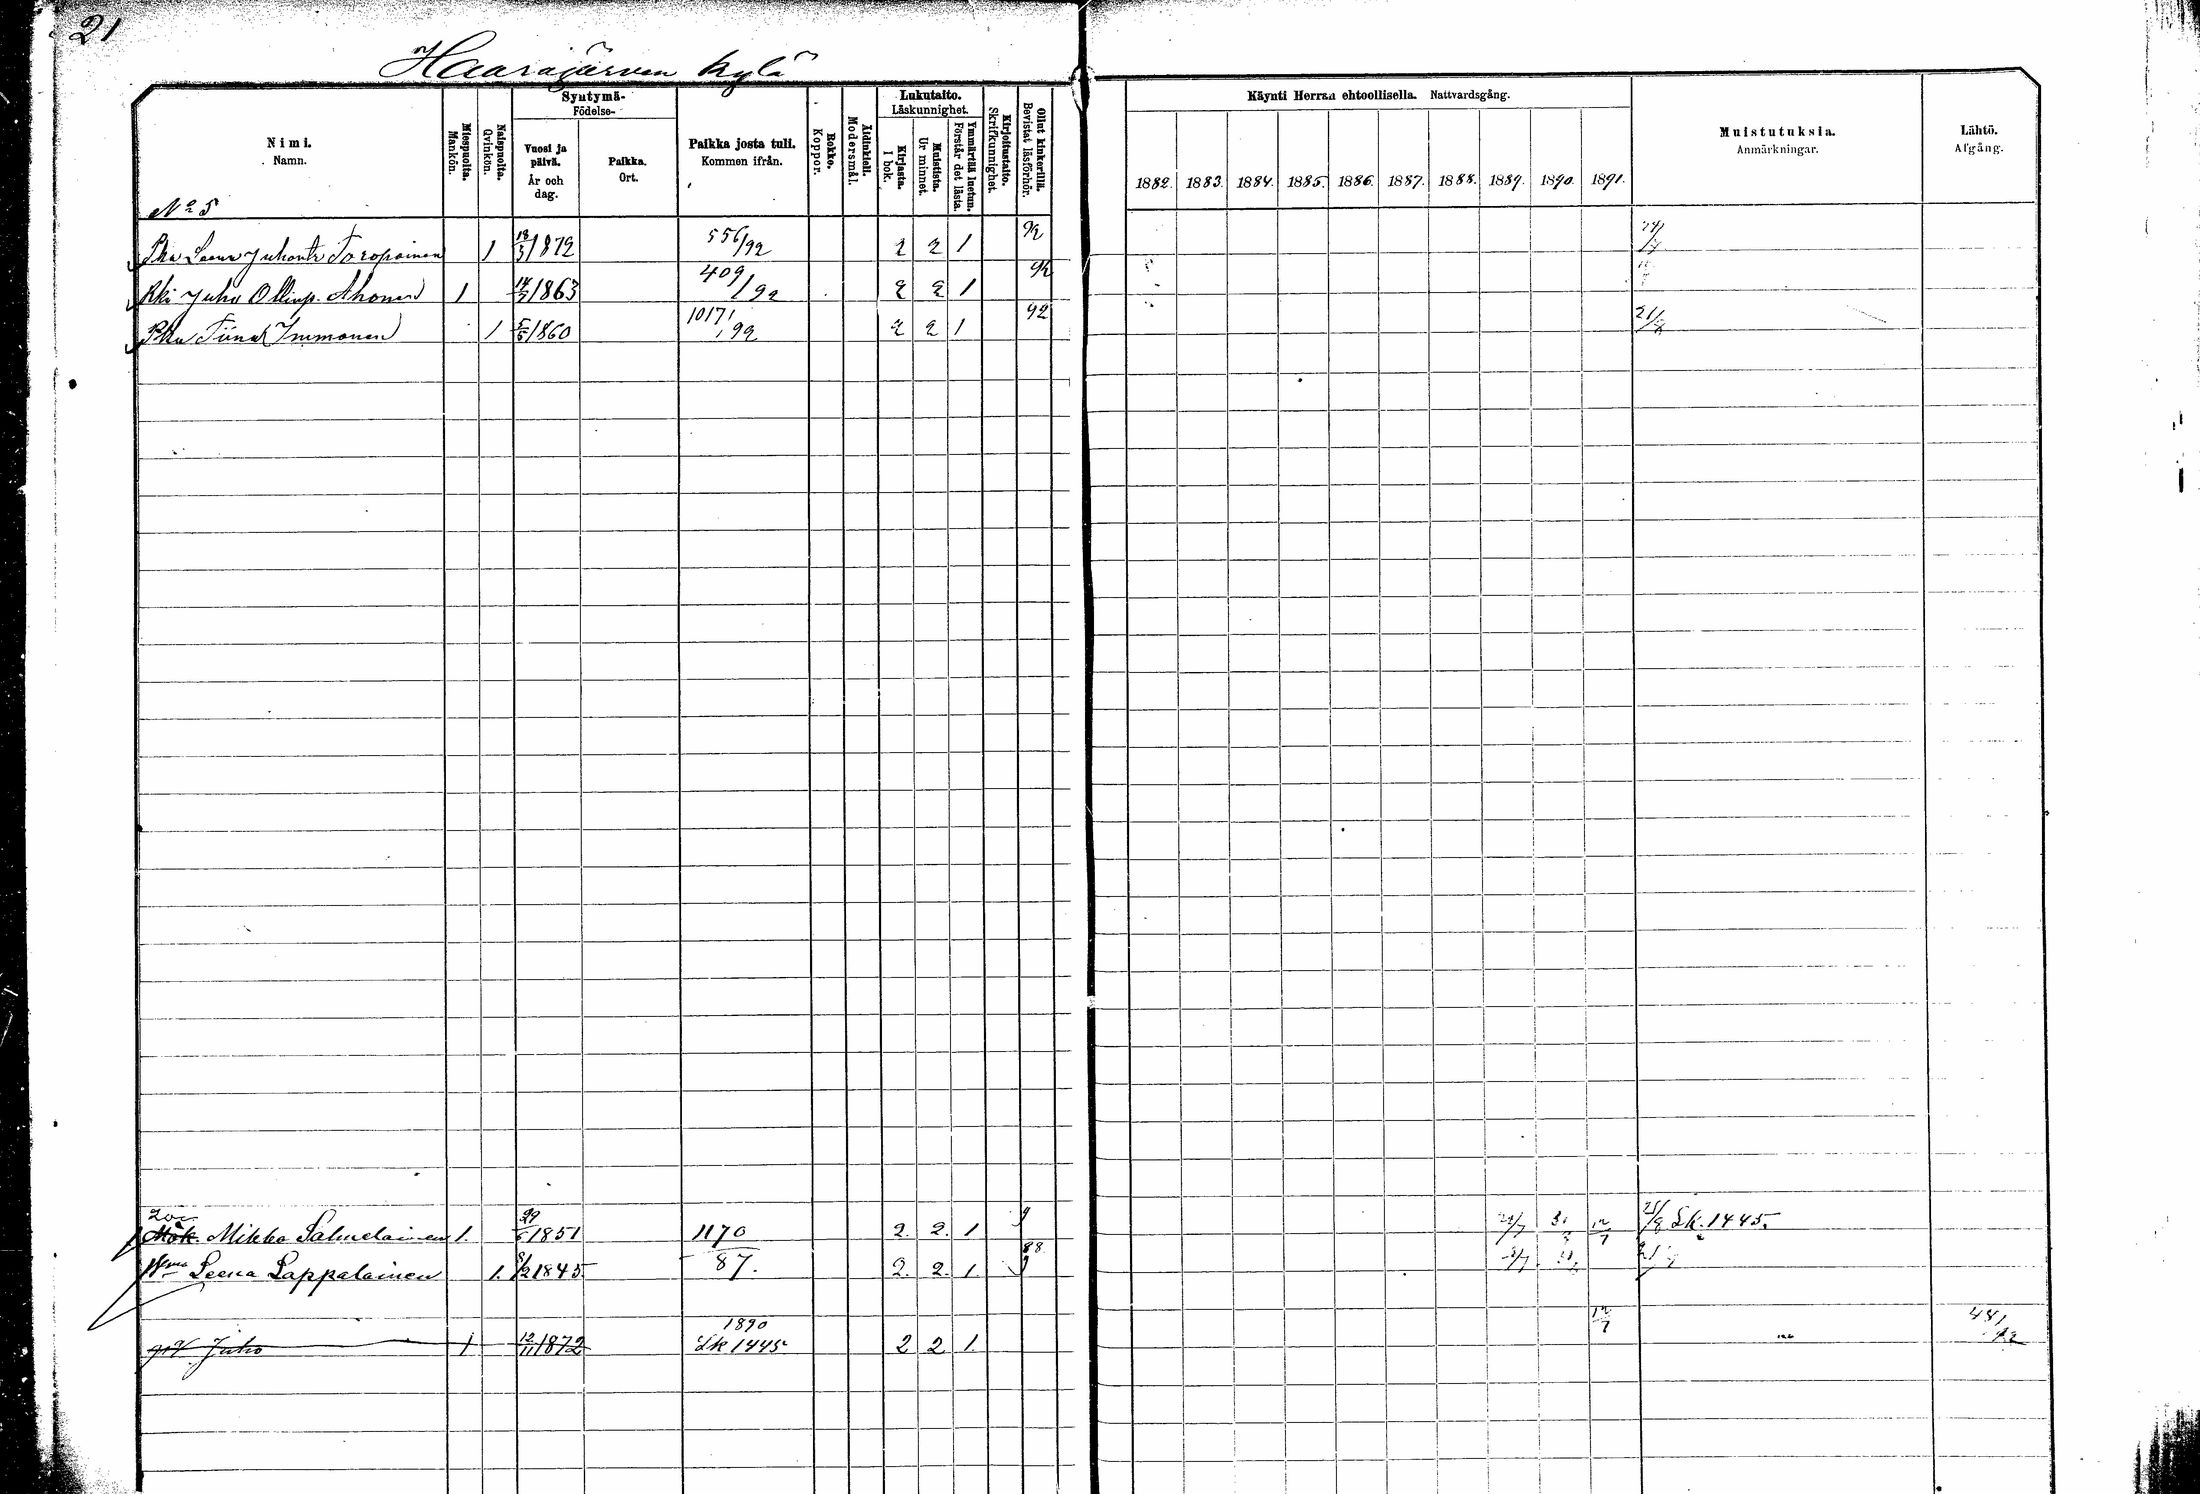 21
Haarajärven kylä
Nimi. Namn.
Miespuolta. Mankön.
Naispuolta. Qvinkön.
Syntymä- Födelse-
Vuosi ja päivä. År och dag.
Paikka. Ort.
Paikka josta tuli. Kommen ifrån.
Rokko. Koppor.
Äidinkieli. Modersmål.
Lukutaito. Läskunnighet.
Kirjasta. I bok.
Muistista. Ur minnet.
Ymmärtää luetun. Förstår det lästa.
Kirjoitustaito. Skrifkunnighet.
Ollut kinkerillä. Bevistat läsförhör.
Käynti Herran ehtoollisella. Nattvardsgång.
1882. 1883. 1884. 1885. 1886. 1887. 1888. 1889. 1890. 1891.
Muistutuksia. Anmärkningar.
Lähtö. Afgång.
No 5
Pka Leena Juhontr Toropainen 1 18/3 1872 556/92 2 2 1 92
Rki Juho Ollinp. Ahonen 1 14/7 1863 409/92 2 2 1 92
Pka Tiina Immonen 1 5/5 1860 1017/92 2 2 1 92 21/8
Mök. Mikko Sahuelainen 1. 29/6 1851 1170 2. 2. 1 12/7 25/8 Lk. 1445.
Leena Lappalainen 1. 8/2 1845. 87. 2. 2. 1. 88
Juho 1 12/11 1872 1890 Lk 1445. 2 2 1. 12/7 481/92